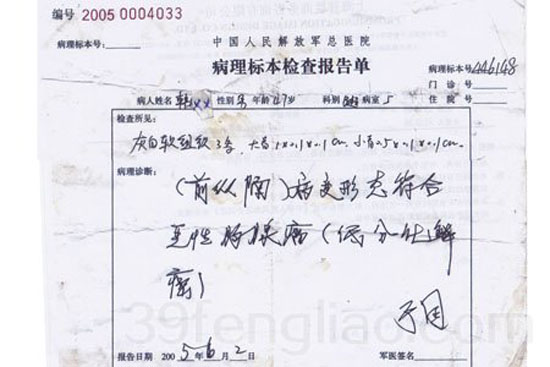 编号 2005 0004033
中国人民解放军总医院
病理标本号:
病理标本检查报告单
病理标本号 446148
门诊号
病人姓名 韩xx 性别 男 年龄 47岁 科别 病室 5 住院号
检查所见:
灰白软组织3条 大者1x0.1x0.1cm. 小者0.5x0.1x0.1cm.
病理诊断:
(前纵隔)病变形态符合
恶性胸腺瘤(低分化鳞
癌)
报告日期 2005年6月2日
军医签名
39fengliao.com